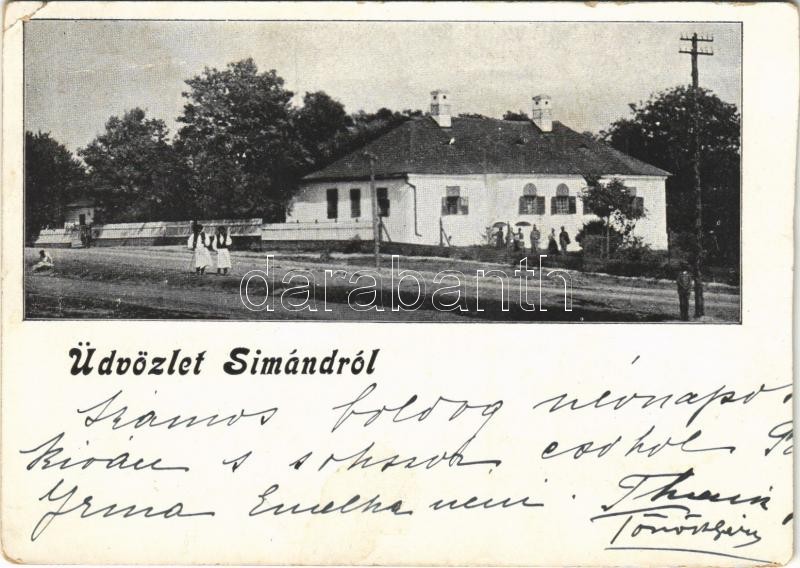 darabanth
Üdvözlet Simándról
Számos boldog névnapo
kiván s sokszor csókol
Irma Emelka néni.